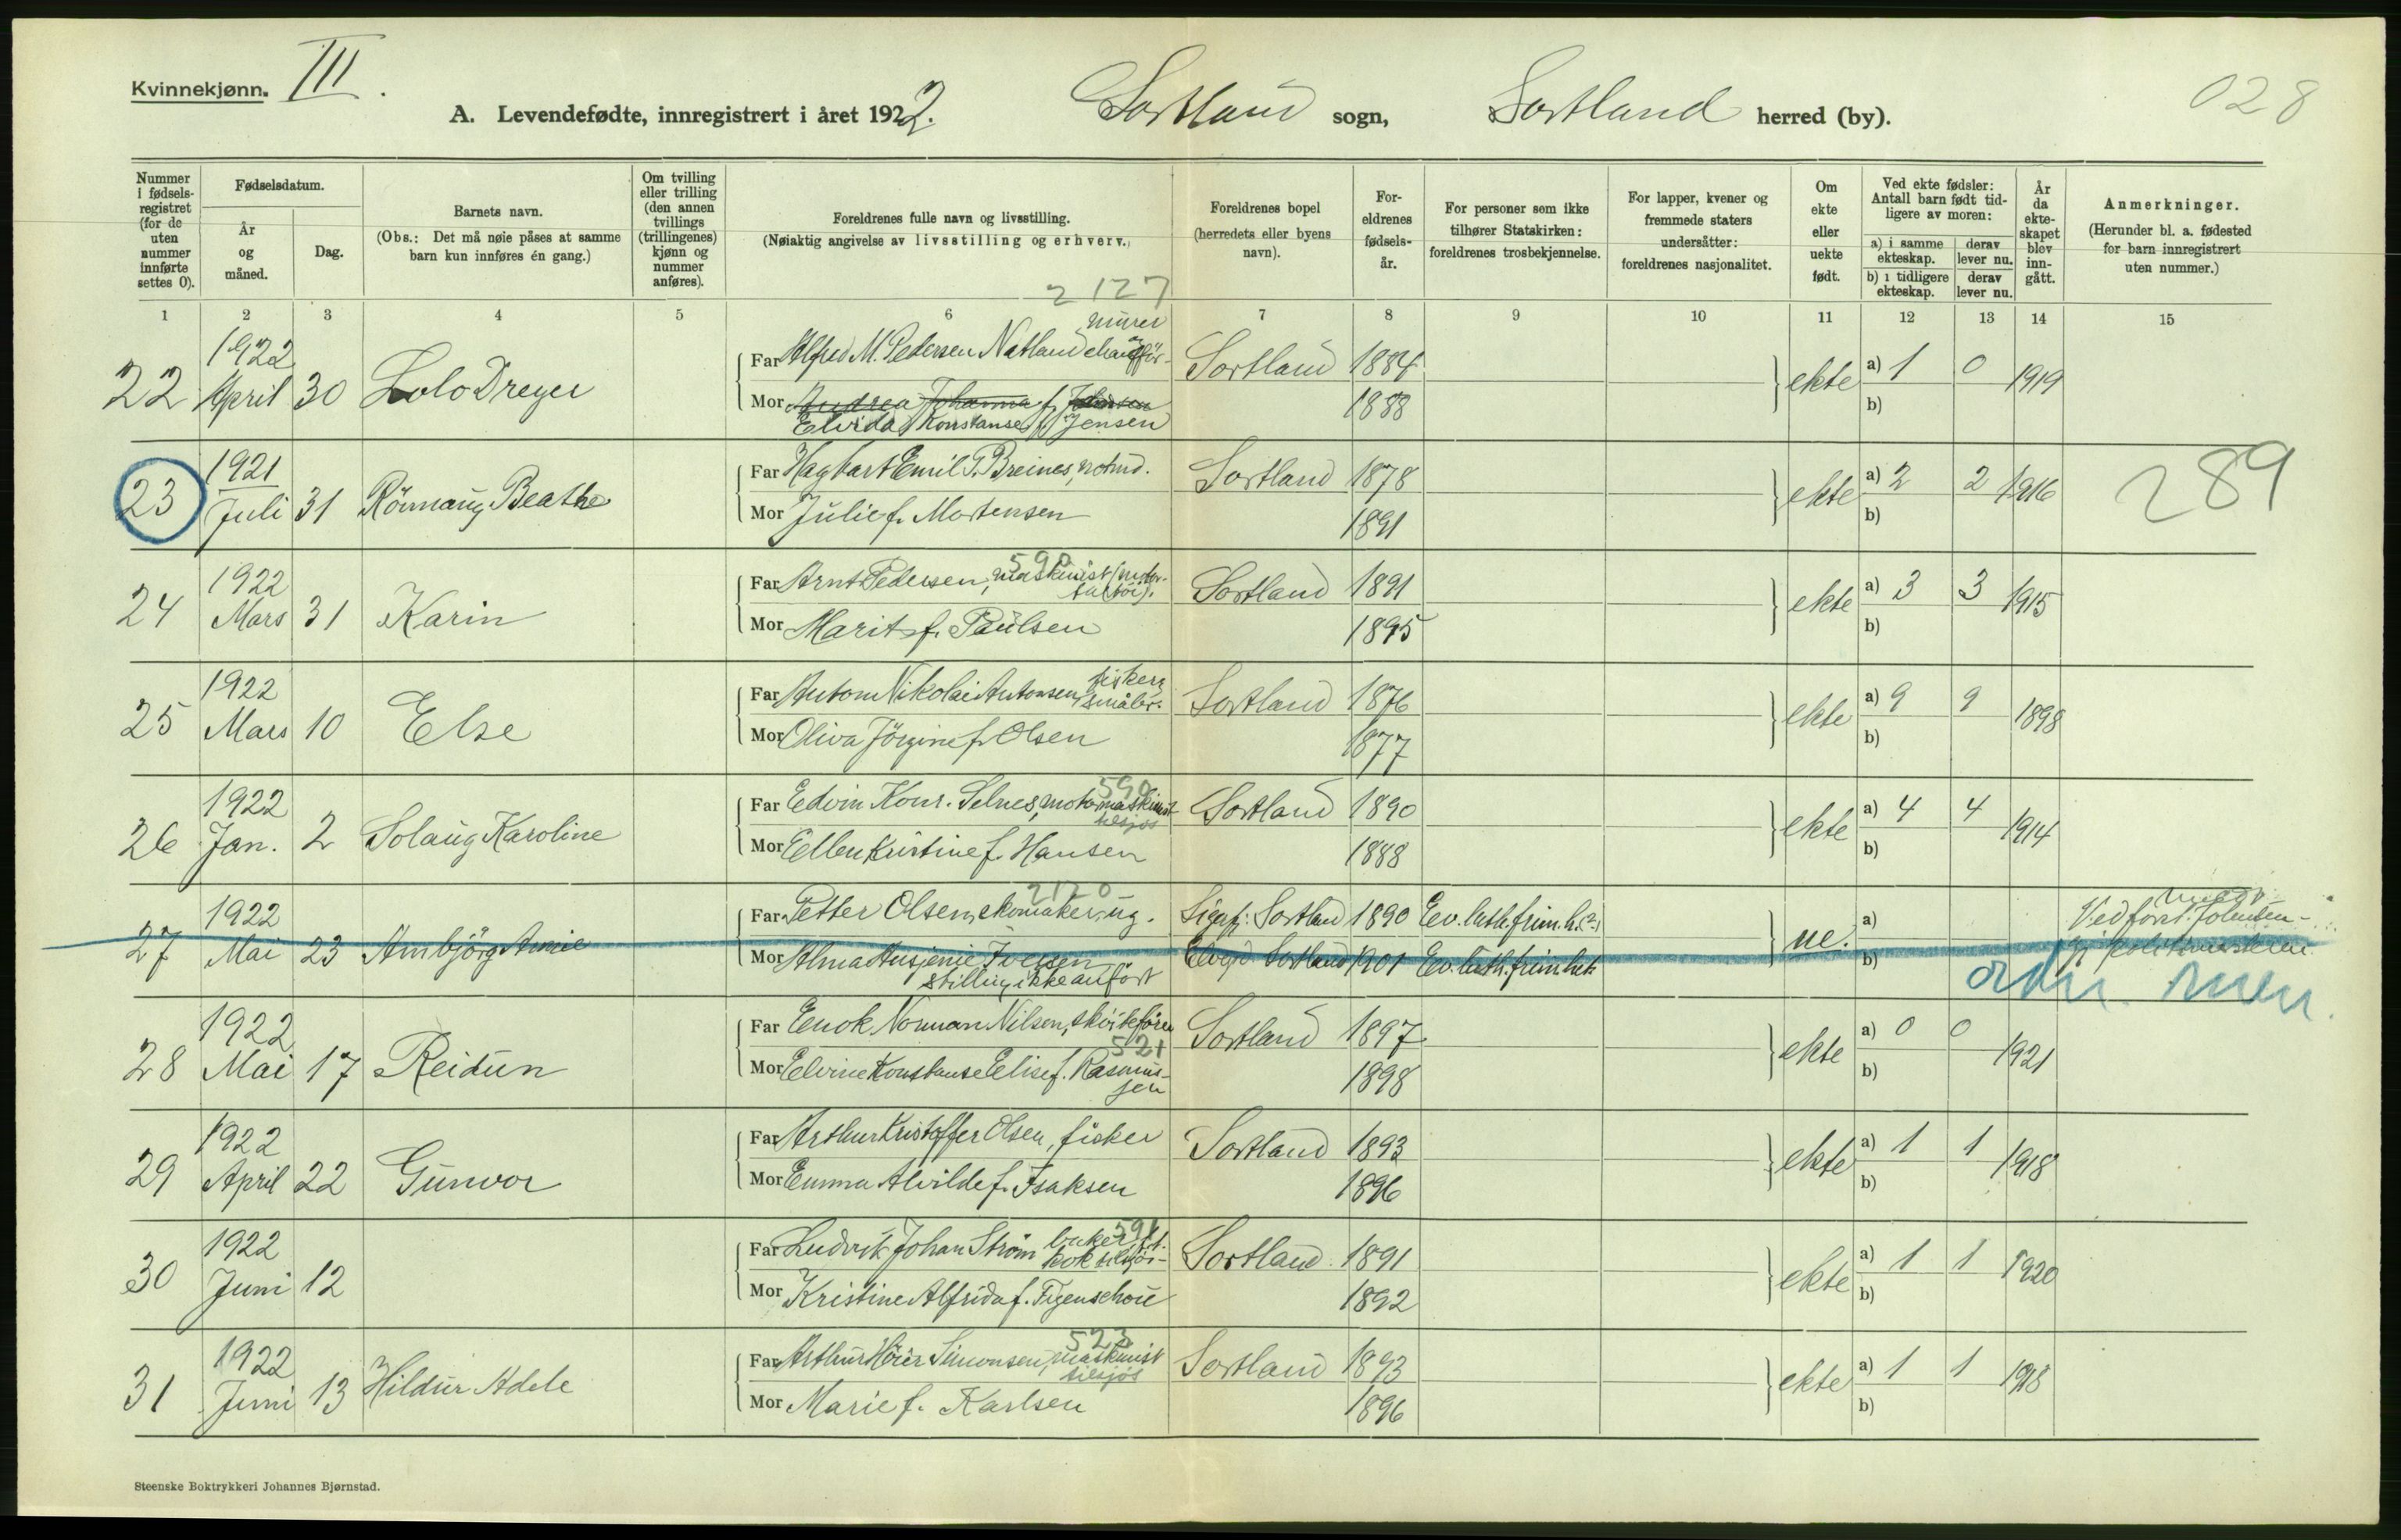 Kvinnekjønn. III.
A. Levendefødte, innregistrert i året 1922. Sortland sogn, Sortland herred (by).
028
Nummer i fødselsregistret (for de uten nummer innførte settes 0).
Fødselsdatum.
År og måned.
Dag.
Barnets navn.
(Obs.: Det må nøie påses at samme barn kun innføres én gang.)
Om tvilling eller trilling (den annen tvillings (trillingenes) kjønn og nummer anføres).
Foreldrenes fulle navn og livsstilling.
(Nøiaktig angivelse av livsstilling og erhverv.)
Foreldrenes bopel (herredets eller byens navn).
Foreldrenes fødselsår.
For personer som ikke tilhører Statskirken: foreldrenes trosbekjennelse.
For lapper, kvener og fremmede staters undersåtter: foreldrenes nasjonalitet.
Om ekte eller uekte født.
Ved ekte fødsler: Antall barn født tidligere av moren:
a) i samme ekteskap. derav lever nu.
b) i tidligere ekteskap. derav lever nu.
År da ekteskapet blev inngått.
Anmerkninger.
(Herunder bl. a. fødested for barn innregistrert uten nummer.)
1 2 3 4 5 6 7 8 9 10 11 12 13 14 15
2127
murer
22 1922 April 30 Lolo Dreyer
Far Alfred M. Pedersen Natland chaufför Sortland 1884 ekte a) 1 0 1919
Mor Andrea Johanna f. Johnsen 1888 b)
Elvida Konstanse f. Jensen
23 1921 Juli 31 Rönnaug Beathe
Far Hagbart Emil P. Breines, Sortland 1878 ekte a) 2 2 1916 289
Mor Julie f. Mortensen 1891 b)
590
24 1922 Mars 31 Karin
Far Arnt Pedersen, maskinist Sortland 1891 ekte a) 3 3 1915
Mor Marit f. Paulsen 1895 b)
25 1922 Mars 10 Else
Far Anton Nikolai Antonsen, fisker, småbr. Sortland 1876 ekte a) 9 9 1898
Mor Oliva Jörgine f. Olsen 1877 b)
590
26 1922 Jan. 2 Solaug Karoline
Far Edvin Konr. Selnes, motormaskinist tilsjös Sortland 1890 ekte a) 4 4 1914
Mor Ellen Kristine f. Hansen 1888 b)
2120
27 1922 Mai 23 Arnbjörg Annie
Far Petter Olsen, skomaker, ug. Sortland 1890 Ev. luth. frim. (?) ue. a)
Mor Alma Iversen Sortland 1901 Ev. luth. frim. b)
stilling ikke anfört
28 1922 Mai 17 Reidun
Far Enok Norman Nilsen, sköitefører Sortland 1897 ekte a) 0 0 1921
521
Mor Elvine Konstanse Elise f. Rasmussen 1898 b)
29 1922 April 22 Gunvor
Far Arthur Kristoffer Olsen, fisker Sortland 1893 ekte a) 1 1 1918
Mor Emma Alvilde f. Isaksen 1896 b)
30 1922 Juni 12
Far Ludvik Johan Ström kok tilsjös Sortland 1891 ekte a) 1 1 1920
Mor Kristine Alfrida f. Figenschou 1892 b)
523
31 1922 Juni 13 Hildur Adele
Far Arthur Simonsen, maskinist tilsjös Sortland 1893 ekte a) 1 1 1918
Mor Marie f. Karlsen 1896 b)
Steenske Boktrykkeri Johannes Bjørnstad.